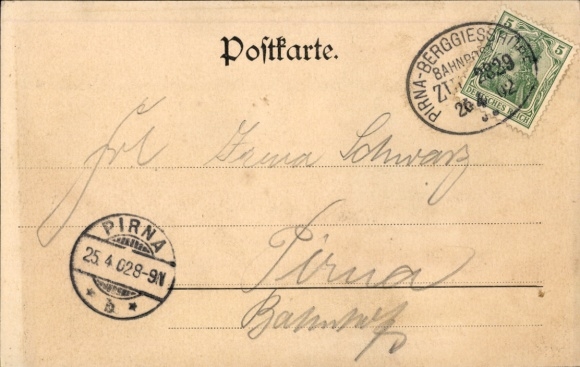 Postkarte.
PIRNA-BERGGIESSHÜBEL
BAHNPOST
ZUG 2829
5 5
DEUTSCHES REICH
Frl Irma Schwarz
PIRNA
25.4.02 8-9N
* b *
Pirna
Bahnhof